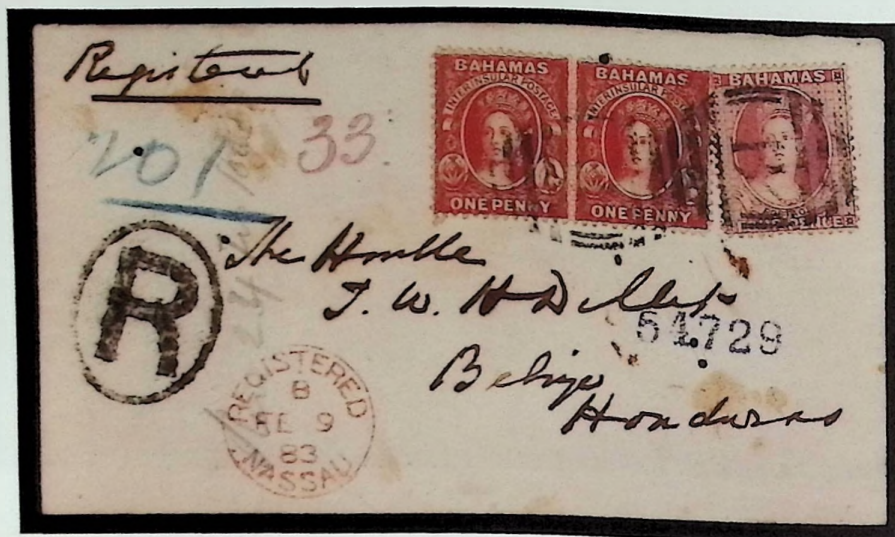 Registered
BAHAMAS
INTERINSULAR POSTAGE
ONE PENNY
BAHAMAS
INTERINSULAR POSTAGE
ONE PENNY
BAHAMAS
201
33
R
The Honble
T. W. H
54729
Belize
Honduras
REGISTERED
B
FE 9
83
NASSAU